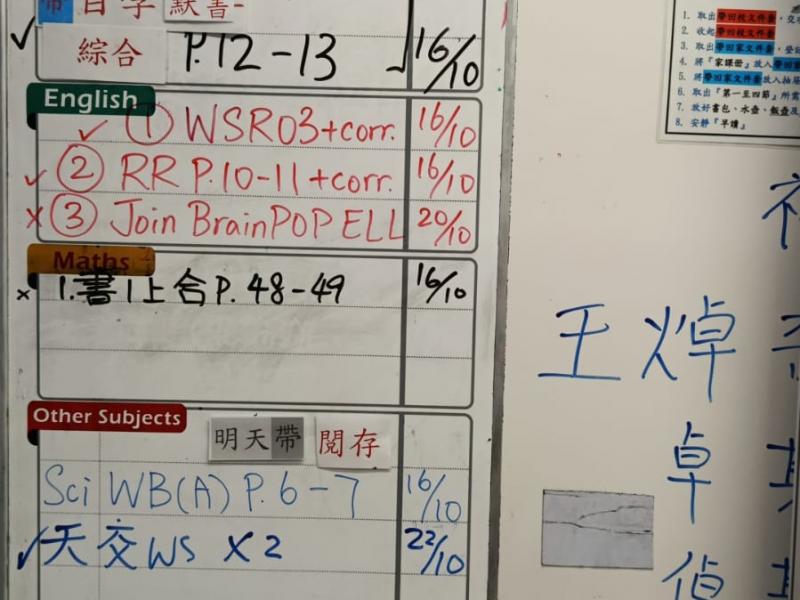 帶 自學 默書
✓ 綜合 P.12-13 16/10
English
✓ ① WSR03+corr. 16/10
✓ ② RR P.10-11+corr. 16/10
× ③ Join BrainPOP ELL 20/10
Maths
× 1.書1上合P.48-49 16/10
Other Subjects
明天帶 閱存
Sci WB(A) P.6-7 16/10
✓ 天交WS ×2 22/10
1. 取出帶回校文件套,交
2. 收起帶回校文件套
3. 取出帶回家文件套,登
4. 將『家課冊』放入帶回
5. 將帶回家文件套放入抽
6. 取出『第一至四節』所需
7. 放好書包、水壺、飯壺及
8. 安靜『早讀』
王焯
卓
偵